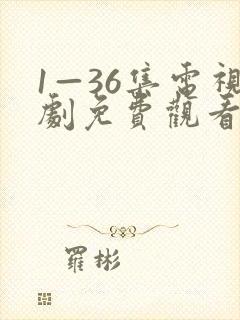 1—36集電視
劇免費觀看
羅彬